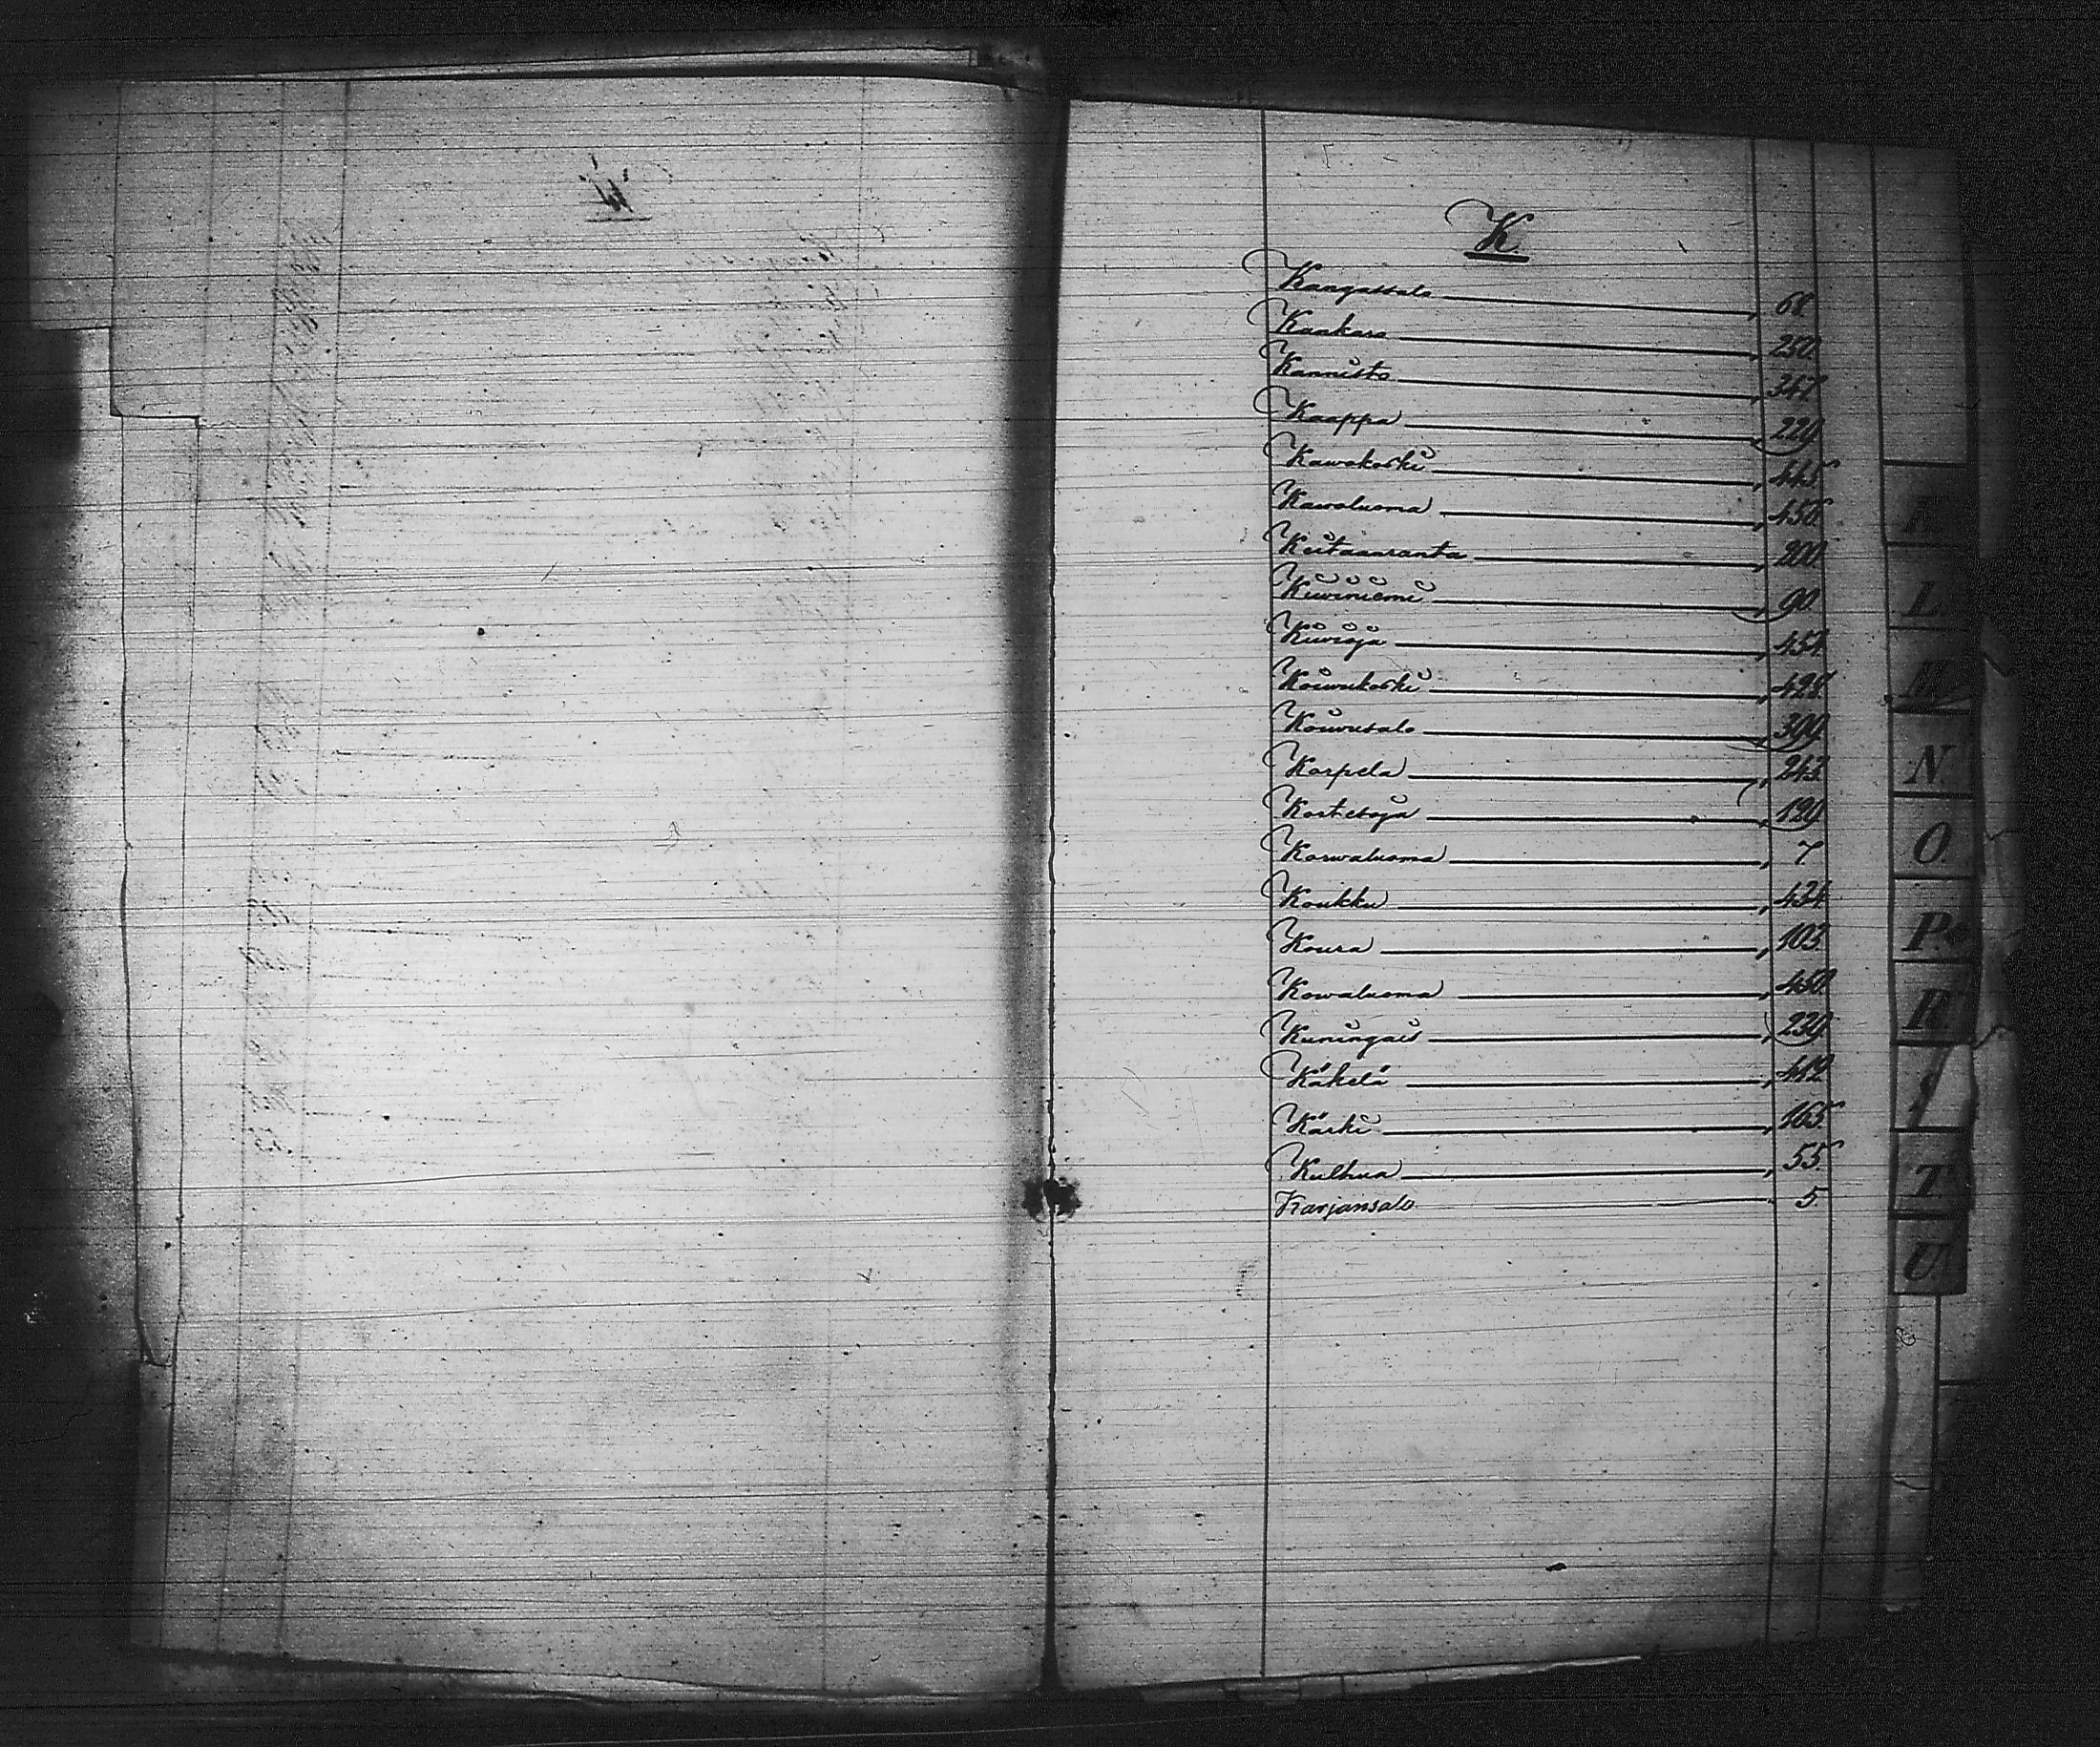 K.
Kangassalo 68
Kankara 250
Kannisto 347
Kaappa 229
Kawakoski 445
Kawaluoma 456
Keitaanranta 200
Kiwiniemi 90
Kiwioja 454
Koiwukoski 428
Koiwusalo 309
Korpela 243
Kortesoja 129
Korwaluoma 7
Koukku 434
Koura 103
Kowaluoma 450
Kuningais 239
Käkelä 412
Käski 165
Kulhua 55
Karjansalo 5.
K
L
M
N
O
P.
R
S
T
U